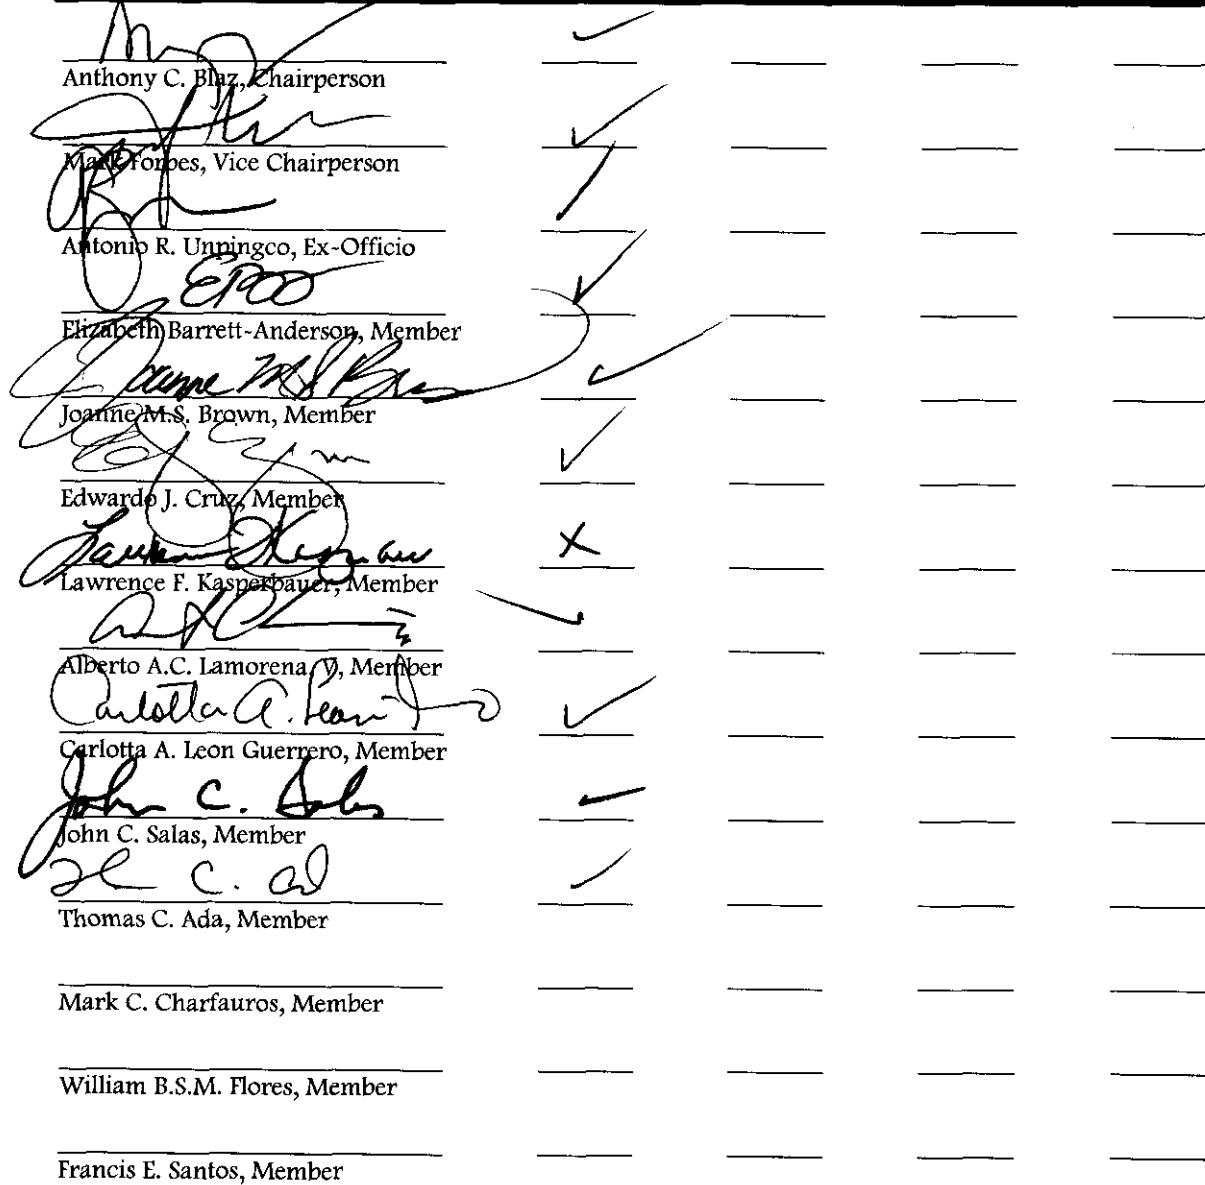 Anthony C. Blaz, Chairperson
Mark Forbes, Vice Chairperson
Antonio R. Unpingco, Ex-Officio
Elizabeth Barrett-Anderson, Member
Joanne M.S. Brown
Joanne M.S. Brown, Member
Edwardo J. Cruz, Member
Lawrence F. Kasperbauer, Member
Alberto A.C. Lamorena, V, Member
Carlotta A. Leon
Carlotta A. Leon Guerrero, Member
John C. Salas
John C. Salas, Member
Thomas C. Ada, Member
Mark C. Charfauros, Member
William B.S.M. Flores, Member
Francis E. Santos, Member